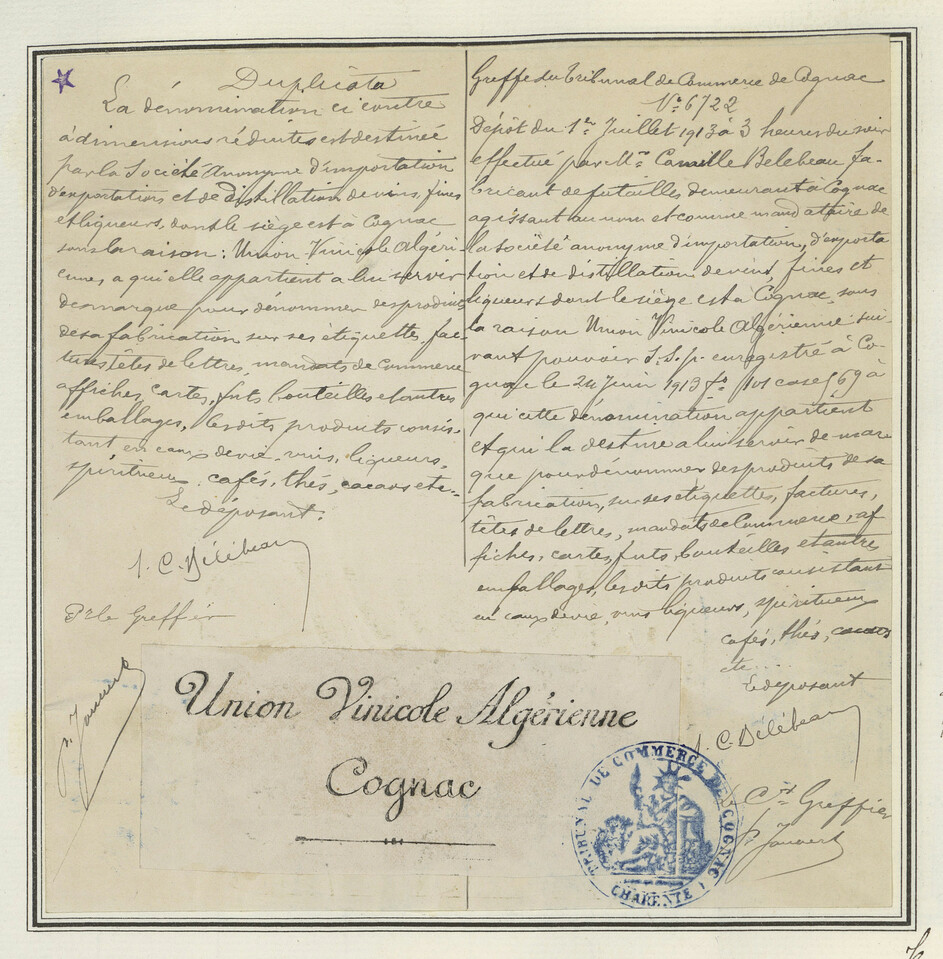 Duplicata
La dénomination ci contre
à dimensions réduites est destinée
par la Société Anonyme d'importation
d'exportation et de distillation de vins, fines
et liqueurs, dont le siège est à Cognac
sous la raison: Union Vinicole Algéri-
enne, a qu'elle appartient a lui servir
de marque pour dénommer des produits
de sa fabrication sur ses étiquettes, fac-
tures têtes de lettres, mandats de Commerce
affiches, cartes, futs bouteilles et autres
emballages, les dits produits consis-
tant, en eaux de vie, vins, liqueurs,
spiritueux, cafés, thés, cacaos etc..
Le déposant.
C. Délébeau
Pr le Greffier
Greffe du Tribunal de Commerce de Cognac
No 6722
Dépôt du 1er Juillet 1913 à 3 heures du soir
effectué par Mr. Camille Belebeau fa-
bricant de futailles demeurant à Cognac
agissant au nom et comme mandataire de
la société anonyme d'importation, d'exporta
tion et de distillation de vins, fines et
liqueurs dont le siège est à Cognac, sous
la raison Union Vinicole Algérienne sui-
vant pouvoir S.S.p. enregistré à Co-
gnac le 24 Juin 1913 fo 101 case 569 à
qui cette dénomination appartient
et qui la destine a lui servir de mar
que pour dénommer des produits de sa
fabrication, sur ses étiquettes, factures,
têtes de lettres, mandats de Commerce, af
fiches, cartes, futs, bouteilles et autres
emballages, les dits produits consistant
en eaux de vie, vins liqueurs, spiritueux
cafés, thés, cacaos
etc....
Le déposant
C. Délébeau
Greffier
Union Vinicole Algérienne
Cognac
TRIBUNAL DE COMMERCE DE COGNAC
CHARENTE